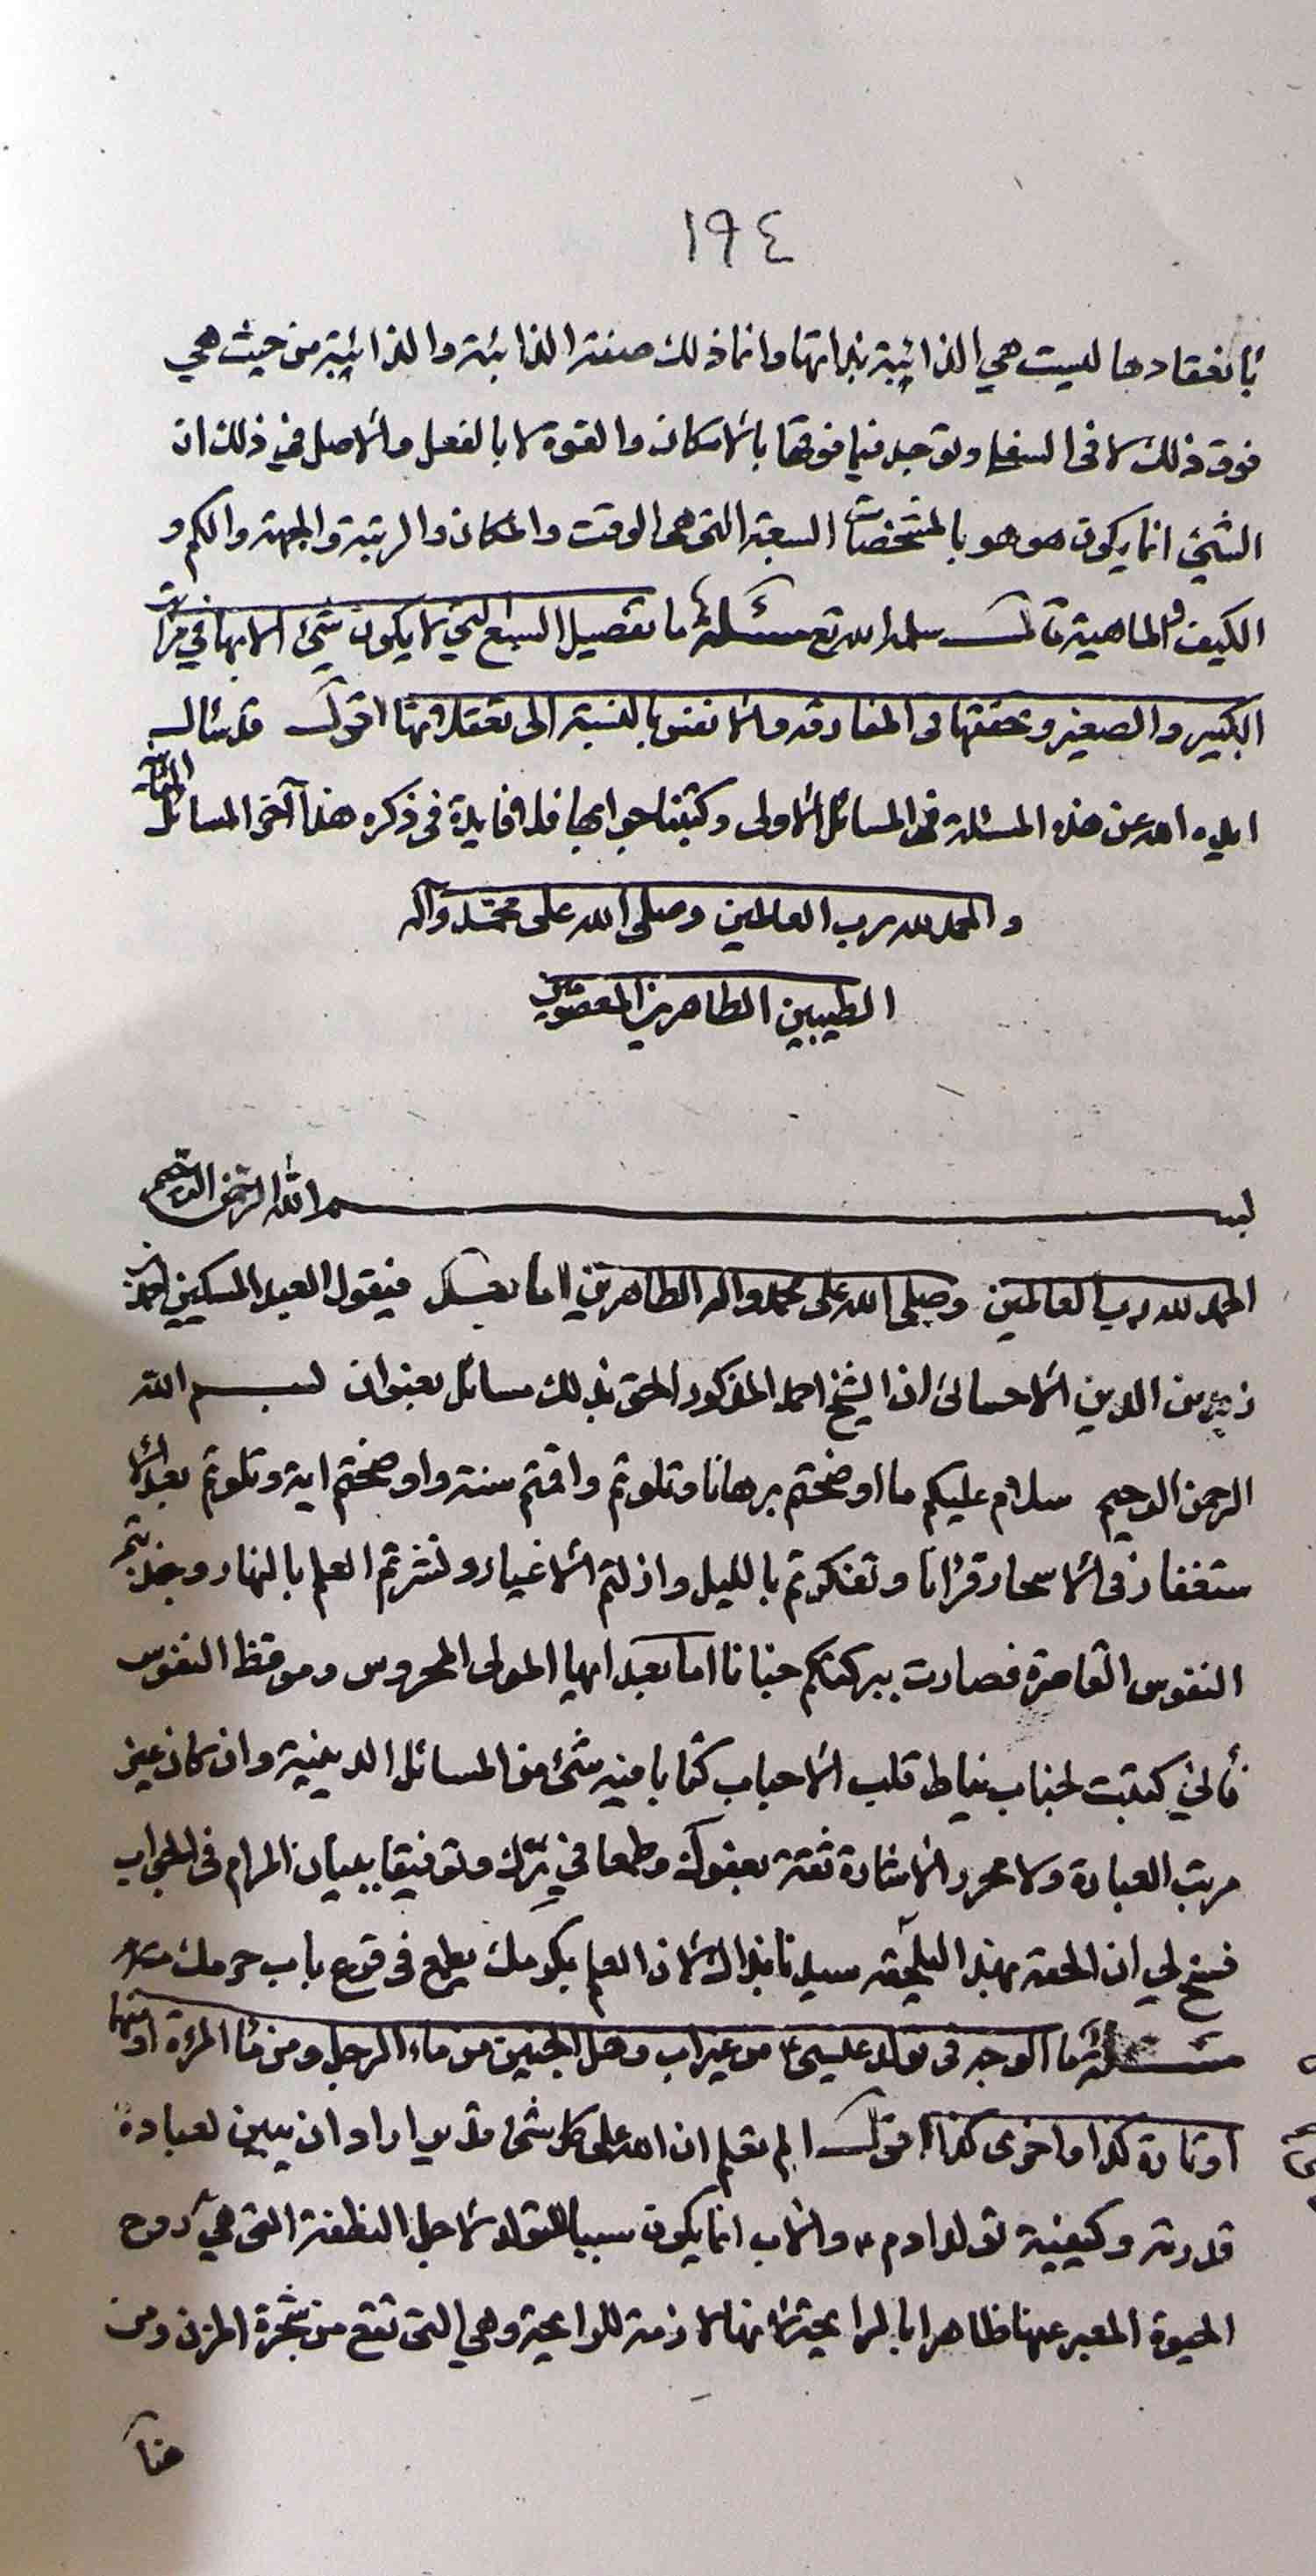 ١٩٤
بانعقادها ليست هي الذائبية بذاتها وانما ذلك صفة الذائبية والذائبية من حيث هي
فوق ذلك لا في السفلى وتوجد فيما فوقها بالامكان والقوة لا بالفعل والاصل في ذلك ان
الشيئ انما يكون هو هو بالمشخصات السبعة التى هى الوقت والمكان والرتبة والجهة والكم و
الكيف والماهية قال سلمه الله تع مسئلة ما تفصيل السبع التي لا يكون شيئ الا بها في مرات
الكبير والصغير وتحققها فى المفارقه والانفس بالنسبة الى تعقلاتها اقول قد سئال
ايده الله عن هذه المسئلة فى المسائل الاولى وكتبنا جوابها فلا فايدة فى ذكره هذا آخر المسائل الثانية
والحمد لله رب العالمين وصلى الله على محمد وآله
الطيبين الطاهرين المعصومين
بسم الله الرحمن الرحيم
الحمد لله رب العالمين وصلى الله على محمد واله الطاهرين اما بعد فيقول العبد المسكين احمد بن
زين الدين الاحسائى ان الشيخ احمد المذكور الحق بذلك مسائل بعنوان بسم الله
الرحمن الرحيم سلام عليكم ما اوضحتم برهانا وتلوتم واقمتم سنة واوضحتم اية وتلوتم بعد الا
ستغفار فى الاسحار قرانا وتفكرتم بالليل وازلتم الاغيار ونشرتم العلم بالنهار وجذبتم
النفوس القاصرة فصارت ببركتكم جنانا اما بعد ايها المولى المحروس وموقظ النفوس
فأني كتبت لجناب نياط قلب الاحباب كتابا فيه شئ من المسائل الدينية وان كان غير
مرتب العبارة ولا محرر الاشارة ثقة بعفوك وطمعا في برّك وتوفيقا ببيان المرام فى الجواب
فسنح لي ان الحقه بهذا اليلحقه سيدنا بذاك لان العلم بكرمك يطمع فى قرع باب حرمك
مسئلة ما الوجه فى تولد عليسى ع من غير اب وهل الجنين من ماء الرجل ومن ماء المرءة او منهما
او تارة كذا واخرى كذا اقول الم تعلم ان الله على كل شئ قدير اراد ان يبين لعباده
قدرته وكيفية تولد ادم ع والاب انما يكون سببا للتولد لاجل النطفة التى هي روح
الحيوة المعبر عنها ظاهرا بالرايحة لانها لازمة للرايحة وهي التى تقع من شجرة المزن ومن
هنا